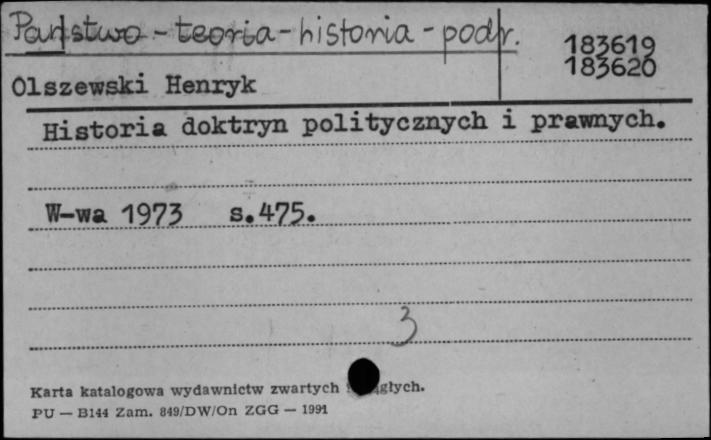 Państwo - teoria - historia - podr.
183619
183620
Olszewski Henryk
Historia doktryn politycznych i prawnych.
W-wa 1973 s.475.
3
Karta katalogowa wydawnictw zwartych
PU — B144 Zam. 849/DW/On ZGG — 1991